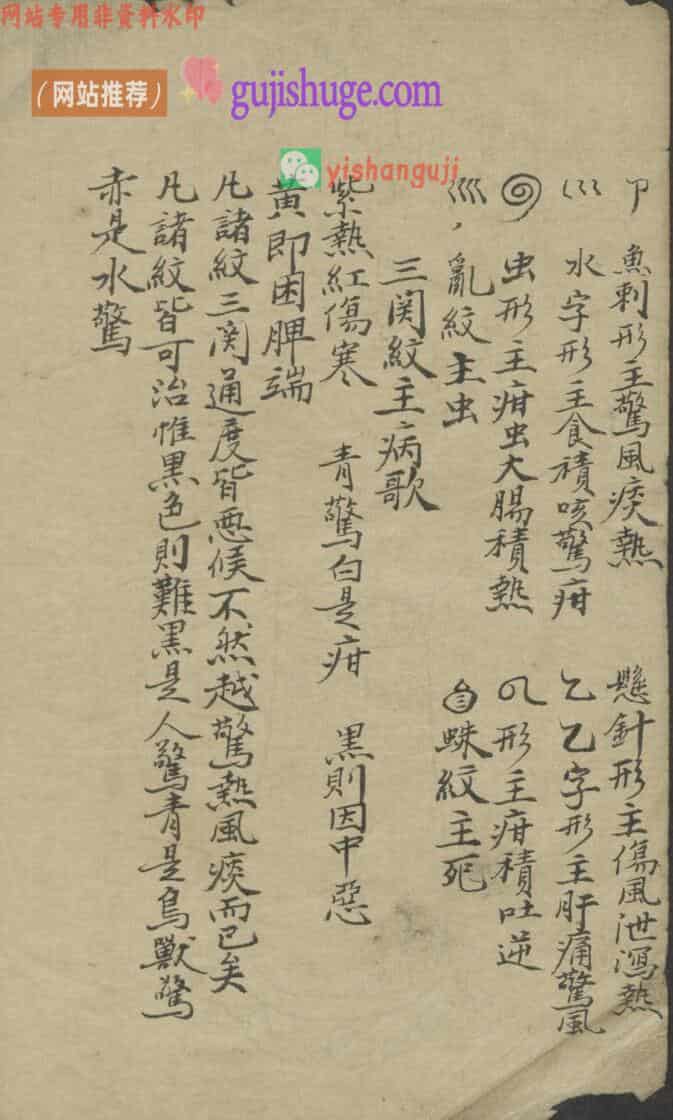 网站专用非资料水印
（网站推荐） gujishuge.com
yishanguji
魚刺形主驚風痰熱 懸針形主傷風泄瀉熱
水字形主食積咳驚疳 乙乙字形主肝痛驚風
虫形主疳虫大腸積熱 形主疳積吐逆
亂紋主虫 蛛紋主死
三関紋主病歌
紫熱紅傷寒 青驚白是疳 黑則因中惡
黃即困脾端
凡諸紋三関通度皆惡候不然越驚熱風痰而已矣
凡諸紋皆可治惟黑色則難黑是人驚青是鳥獸驚
赤是水驚